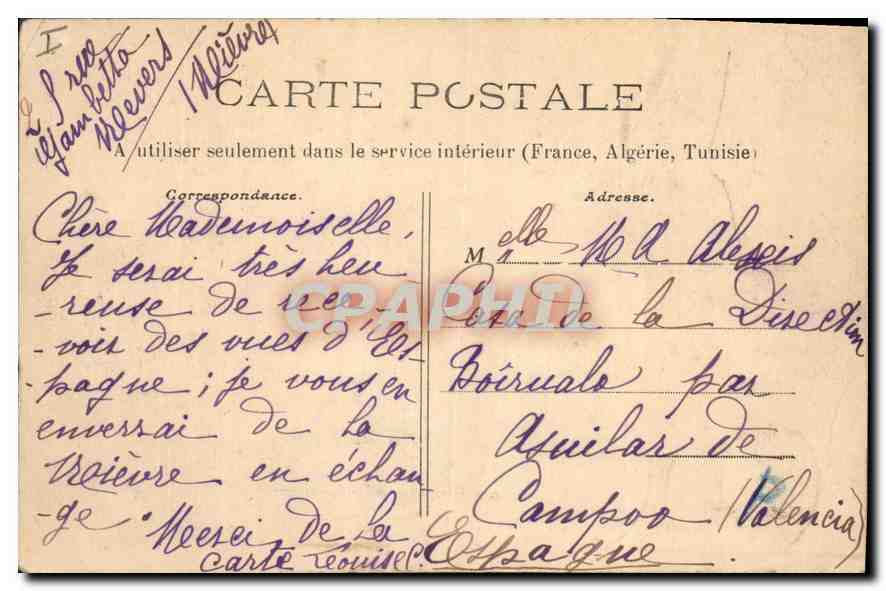 I
5 rue
Gambetta
Nevers
(Nièvre)
CARTE POSTALE
A utiliser seulement dans le service intérieur (France, Algérie, Tunisie)
Correspondance.
Chère Mademoiselle,
Je serai très heu
-reuse de rece-
-voir des vues d'Es-
-pagne; je vous en
enverrai de la
Nièvre en échan
-ge. Merci de la
carte Léouise C.
Adresse.
Melle M A Alexis
Casa de la Direction
Boîrualo par
Aguilar de
Campoo (Valencia)
Espagne.
CPAPHIL